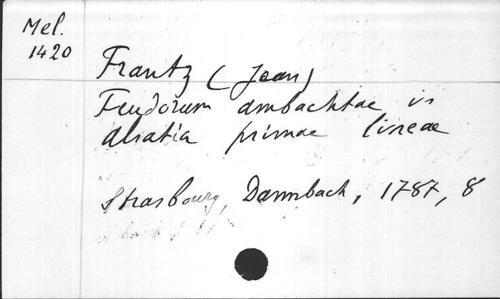 Mel.
1420
Frantz (Joan)
Feudorum ambachtae in
alsatia primae lineae
Strasbourg, Dannbach, 1787, 8